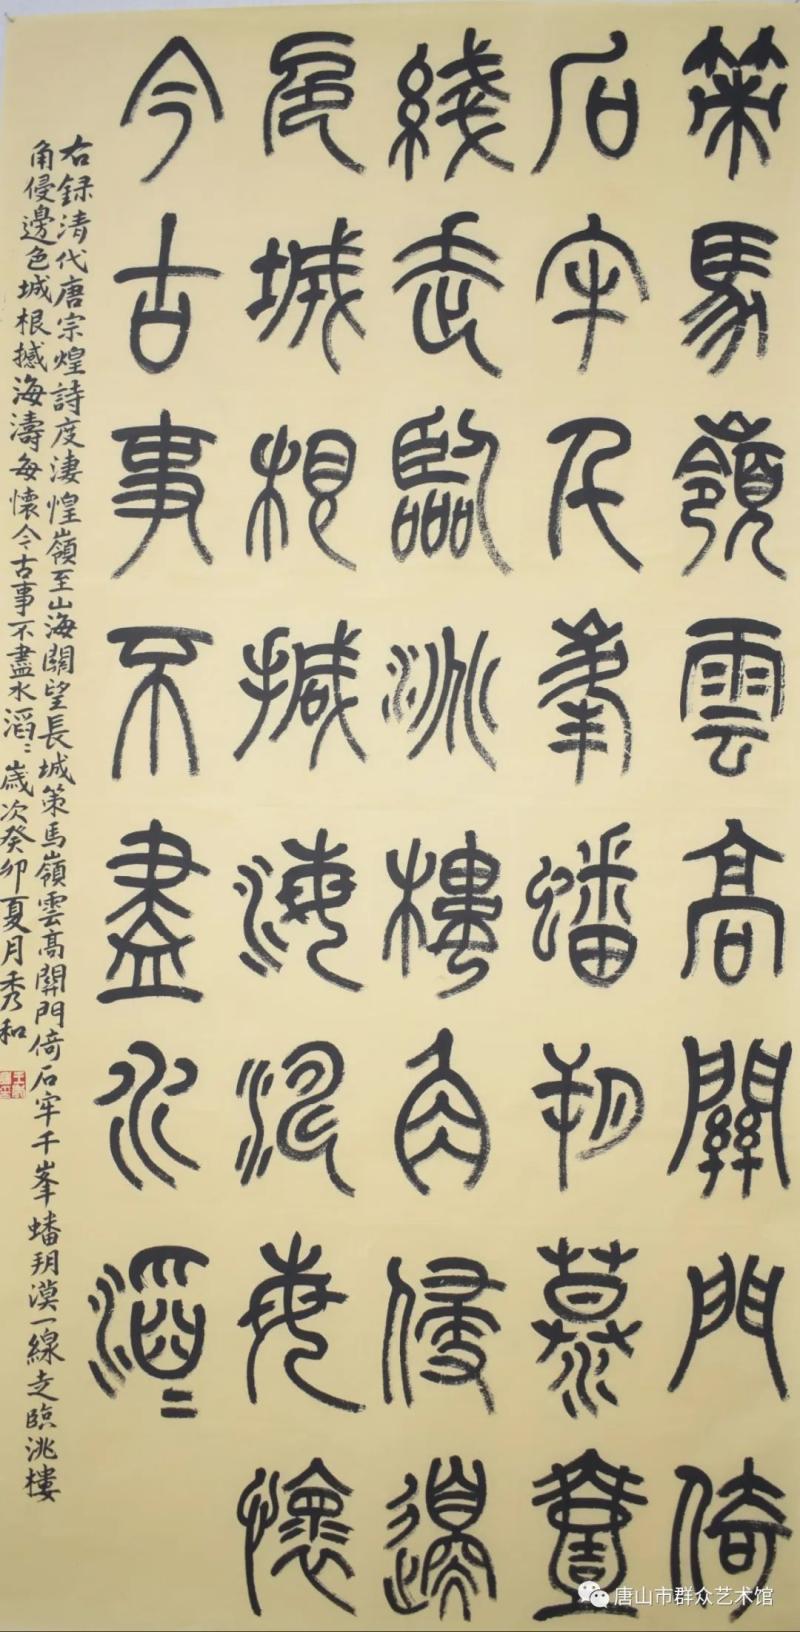 策馬嶺雲高關門倚
石牢千峯蟠朔漠壹
綫走臨洮樓角侵邊
色城根撼海濤每懷
今古事不盡水滔〻
右録清代唐宗煌詩度淒煌嶺至山海關望長城策馬嶺雲高關門倚石牢千峯蟠朔漠一線走臨洮樓
角侵邊色城根撼海濤每懷今古事不盡水滔〻歲次癸卯夏月秀和
唐山市群众艺术馆